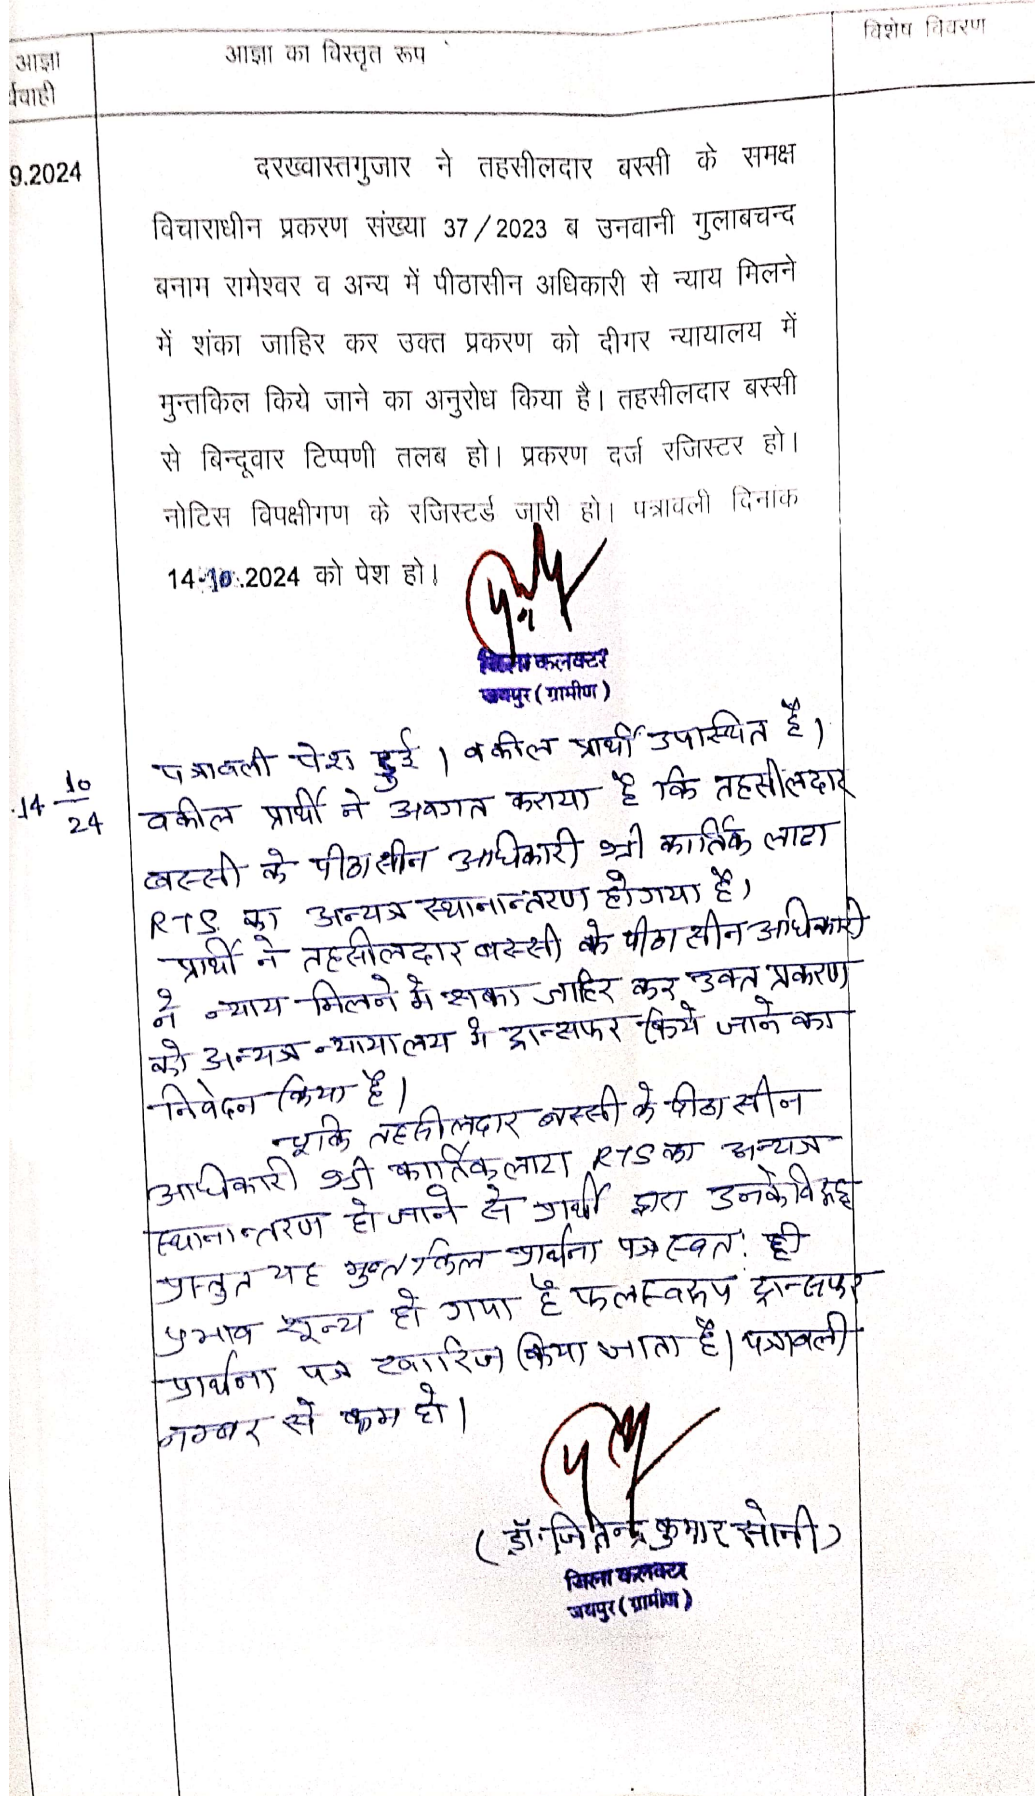 आज्ञा
र्यवाही
आज्ञा का विस्तृत रूप
विशेष विवरण
9.2024
दरख्वास्तगुजार ने तहसीलदार बस्सी के समक्ष
विचाराधीन प्रकरण संख्या 37/2023 ब उनवानी गुलाबचन्द
बनाम रामेश्वर व अन्य में पीठासीन अधिकारी से न्याय मिलने
में शंका जाहिर कर उक्त प्रकरण को दीगर न्यायालय में
मुन्तकिल किये जाने का अनुरोध किया है। तहसीलदार बस्सी
से बिन्दूवार टिप्पणी तलब हो। प्रकरण दर्ज रजिस्टर हो।
नोटिस विपक्षीगण के रजिस्टर्ड जारी हो। पत्रावली दिनांक
14-10.2024 को पेश हो।
जिला कलक्टर
जयपुर (ग्रामीण)
14 10/24
पत्रावली पेश हुई। वकील प्रार्थी उपास्थित है।
वकील प्रार्थी ने अवगत कराया है कि तहसीलदार
बस्सी के पीठासीन आधिकारी श्री कार्तिक लाटा
RTS का अन्यत्र स्थानान्तरण हो गया है।
प्रार्थी ने तहसीलदार बस्सी के पीठासीन आधिकारी
ने न्याय मिलने मे शका जाहिर कर उक्त प्रकरण
को अन्यत्र न्यायालय मे ट्रान्सफर किये जाने का
निवेदन किया है।
चूकि तहसीलदार बस्सी के पीठासीन
आधिकारी श्री कार्तिक लाटा RTS का अन्यत्र
स्थानान्तरण हो जाने से प्रार्थी द्वारा उनके विरूद्ध
प्रस्तुत यह मुन्तकिल प्रार्थना पत्र स्वत: ही
प्रभाव शून्य हो गया है फलस्वरूप ट्रान्सफर
प्रार्थना पत्र खारिज किया जाता है। पत्रावली
नम्बर से कम हो।
(डॉ. जितेन्द्र कुमार सोनी)
जिला कलक्टर
जयपुर (ग्रामीण)